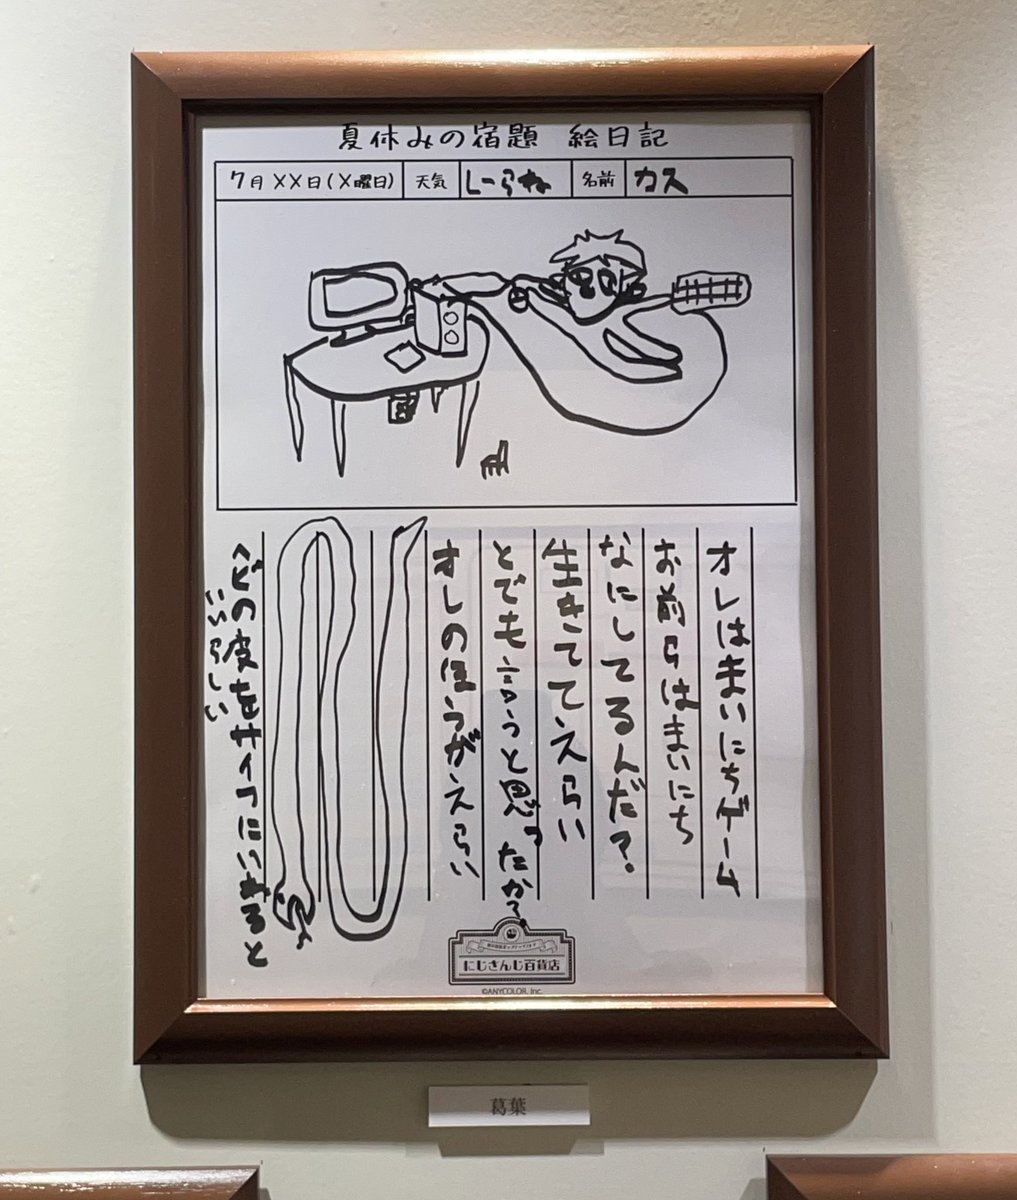 夏休みの宿題 絵日記
7月 XX日(X曜日) 天気 しーらね 名前 カス
オレはまいにちゲーム
お前らはまいにち
なにしてるんだ?
生きててえらい
とでも言うと思ったか?
オレのほうがえらい
ヘビの皮をサイフにいれると
いいらしい
にじさんじ百貨店
©ANYCOLOR, Inc.
葛葉